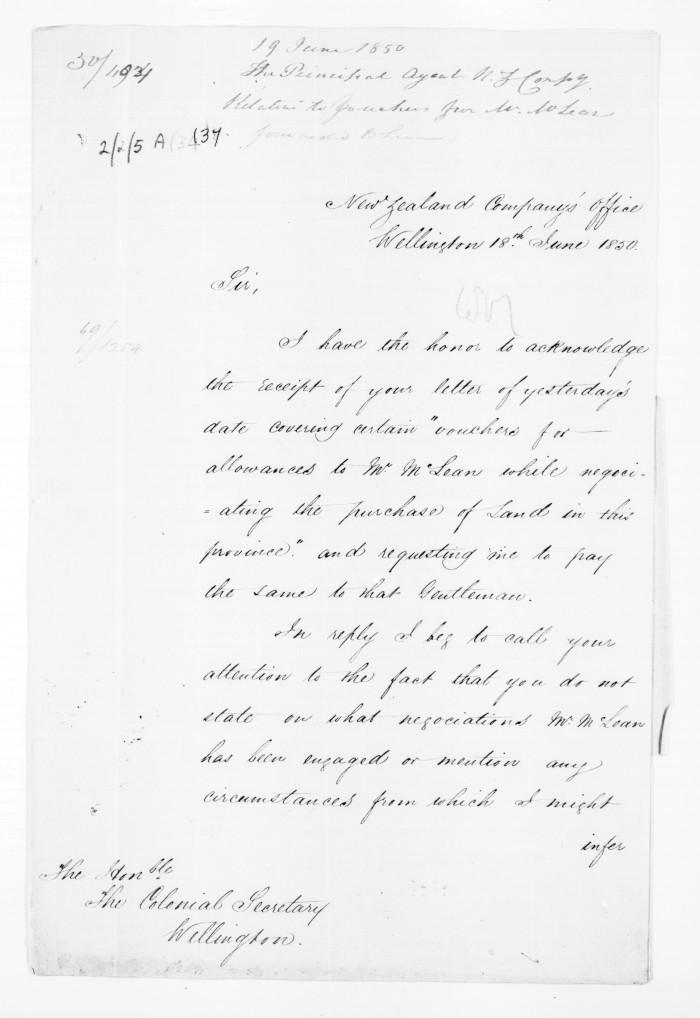 50/494
19 June 1850
The Principal Agent N.Z. Compy.
Relative to Vouchers for Mr. McLean
forwarded to him
2/2/5 A (34 (37.
New Zealand Company's Office
Wellington 18th June 1850.
Sir,
49/1254
I have the honor to acknowledge
the receipt of your letter of yesterday's
date covering certain "vouchers for
allowances to Mr. McLean while negoci-
=ating the purchase of Land in this
province". and requesting me to pay
the same to that Gentleman.
In reply I beg to call your
attention to the fact that you do not
state on what negociations Mr. McLean
has been engaged or mention any
circumstances from which I might
infer
The Honble
The Colonial Secretary
Wellington.